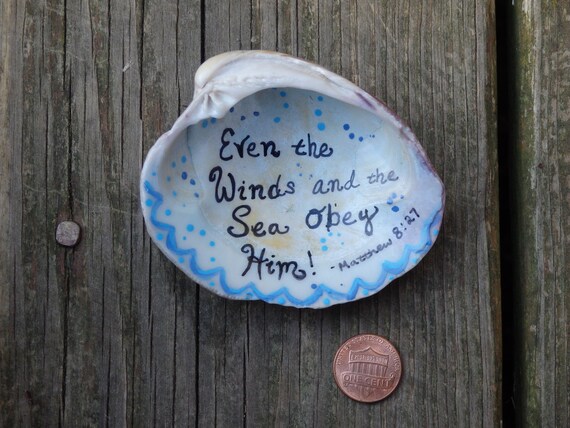 Even the
Winds and the
Sea Obey
Him!
- Matthew 8:27
ONE CENT